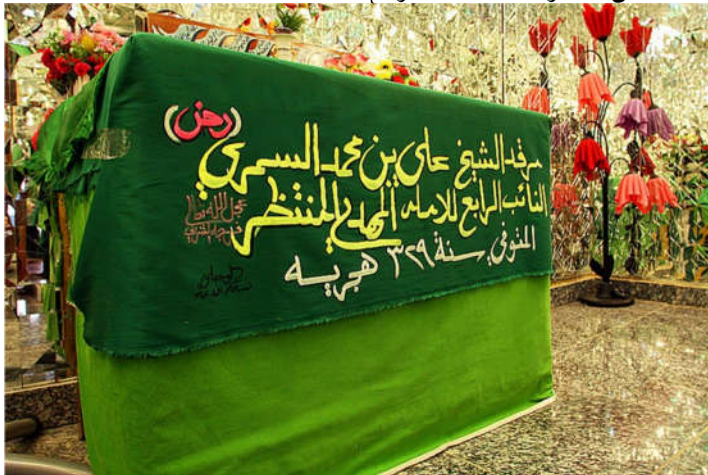 مرقد الشيخ علي بن محمد السمري (رض)
النائب الرابع للامام المهدي المنتظر
عجل الله تعالى
فرجه الشريف
المتوفي سنة ٣٢٩ هجريه